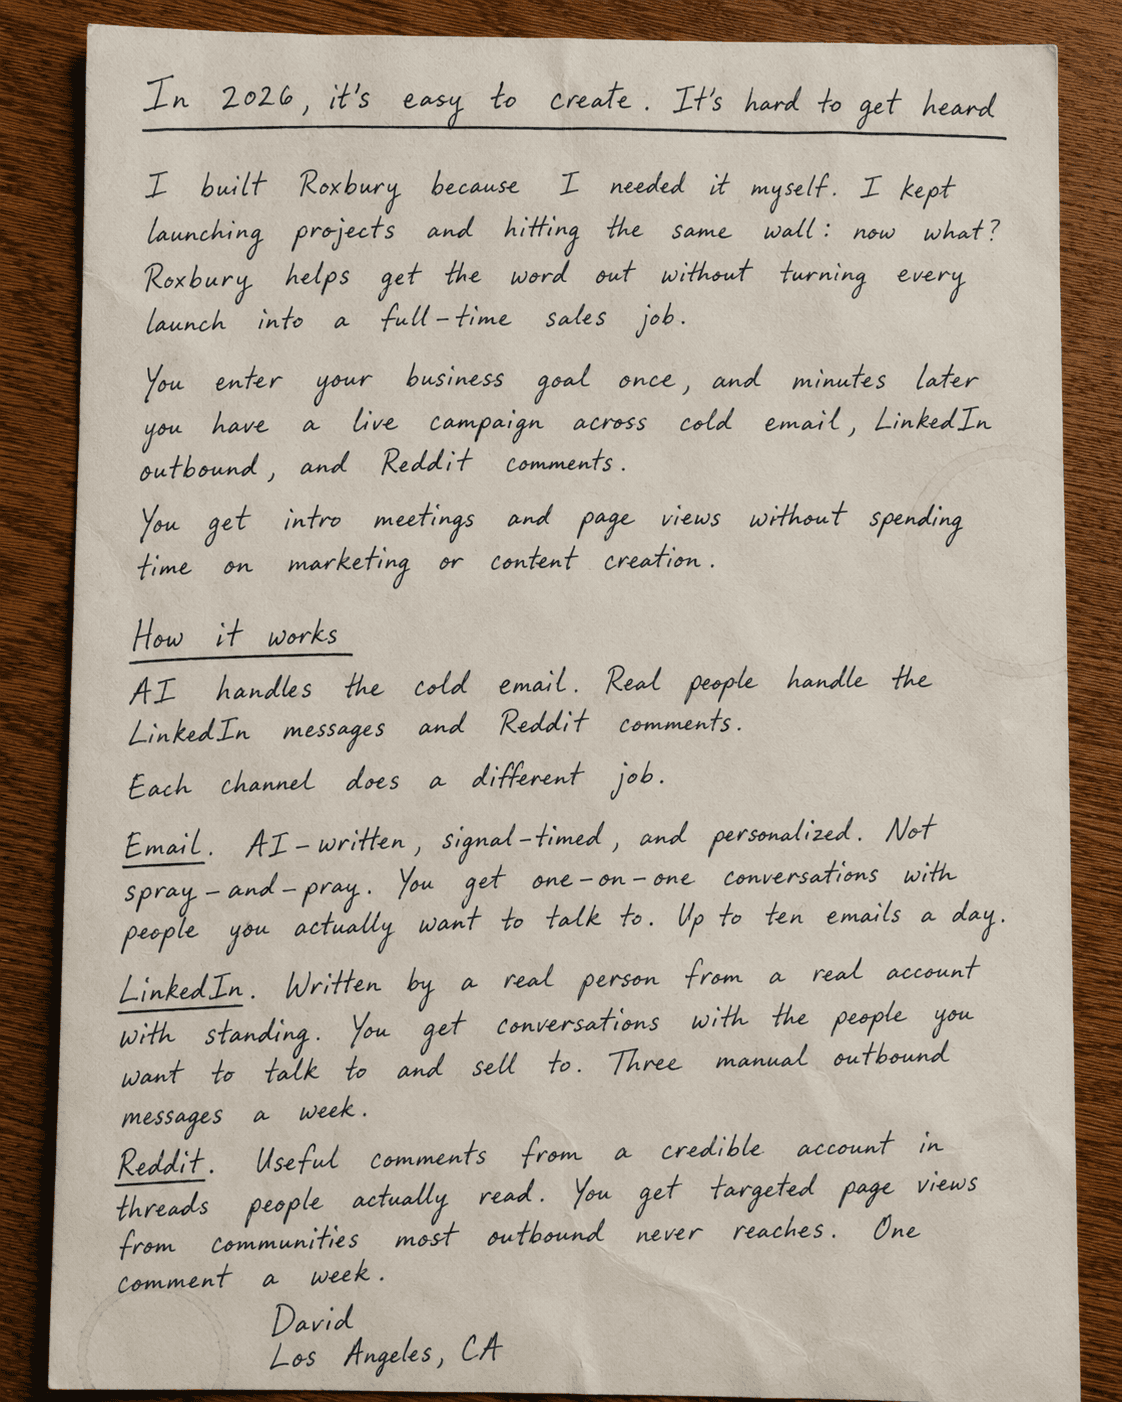 In 2026, it's easy to create. It's hard to get heard
I built Roxbury because I needed it myself. I kept
launching projects and hitting the same wall: now what?
Roxbury helps get the word out without turning every
launch into a full-time sales job.
You enter your business goal once, and minutes later
you have a live campaign across cold email, LinkedIn
outbound, and Reddit comments.
You get intro meetings and page views without spending
time on marketing or content creation.
How it works
AI handles the cold email. Real people handle the
LinkedIn messages and Reddit comments.
Each channel does a different job.
Email. AI-written, signal-timed, and personalized. Not
spray-and-pray. You get one-on-one conversations with
people you actually want to talk to. Up to ten emails a day.
LinkedIn. Written by a real person from a real account
with standing. You get conversations with the people you
want to talk to and sell to. Three manual outbound
messages a week.
Reddit. Useful comments from a credible account in
threads people actually read. You get targeted page views
from communities most outbound never reaches. One
comment a week.
David
Los Angeles, CA